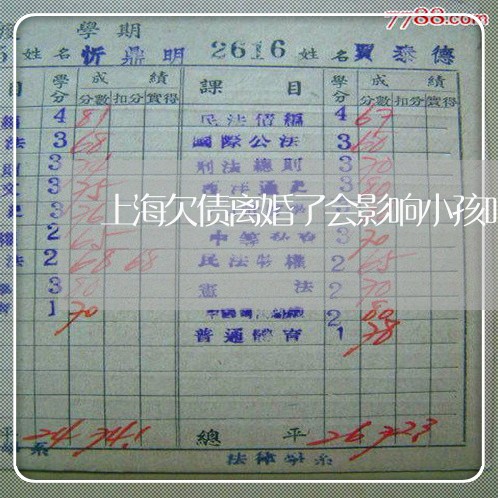 7788.com
學期
姓名 忻鼎明 2616 姓名 賈泰德
目 學分 成績 課目 學分 成績
分數 扣分 實得 分數 扣分 實得
4 81 民法債編 4 67
法 3 68 國際公法 3 60
3 刑法總則 3 70
3 75 3 80
上海欠债离婚了会影响小孩
2 65 3 70
法 2 68 68 民法物權 2 65
3 80 憲法 2 70
1 70 2 80
普通體育 1 78
平 24 74.1 總平 26 72.3
系 法律學系